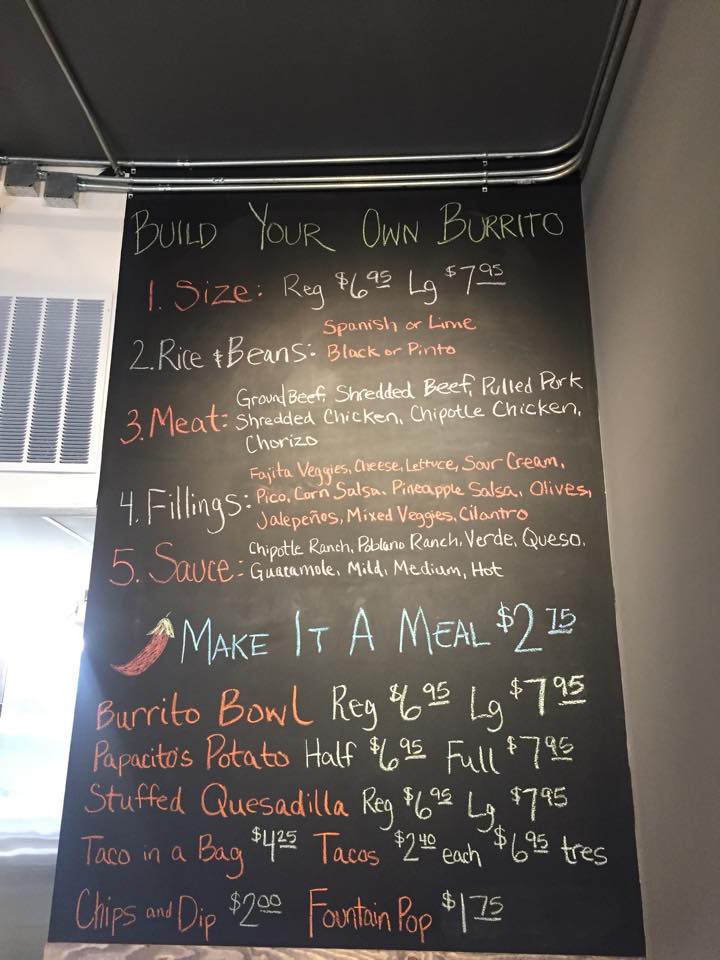 BUILD YOUR OWN BURRITO
1. Size: Reg $6.95 Lg $7.95
Spanish or Lime
2. Rice & Beans: Black or Pinto
Ground Beef, Shredded Beef, Pulled Pork
3. Meat: Shredded Chicken, Chipotle Chicken,
Chorizo
Fajita Veggies, Cheese, Lettuce, Sour Cream,
4. Fillings: Pico, Corn Salsa, Pineapple Salsa, Olives,
Jalepeños, Mixed Veggies, Cilantro
Chipotle Ranch, Poblano Ranch, Verde, Queso,
5. Sauce: Guacamole, Mild, Medium, Hot
MAKE IT A MEAL $2.75
Burrito Bowl Reg $6.95 Lg $7.95
Papacito's Potato Half $6.95 Full $7.95
Stuffed Quesadilla Reg $6.95 Lg $7.95
Taco in a Bag $4.25 Tacos $2.40 each $6.95 tres
Chips and Dip $2.00 Fountain Pop $1.75